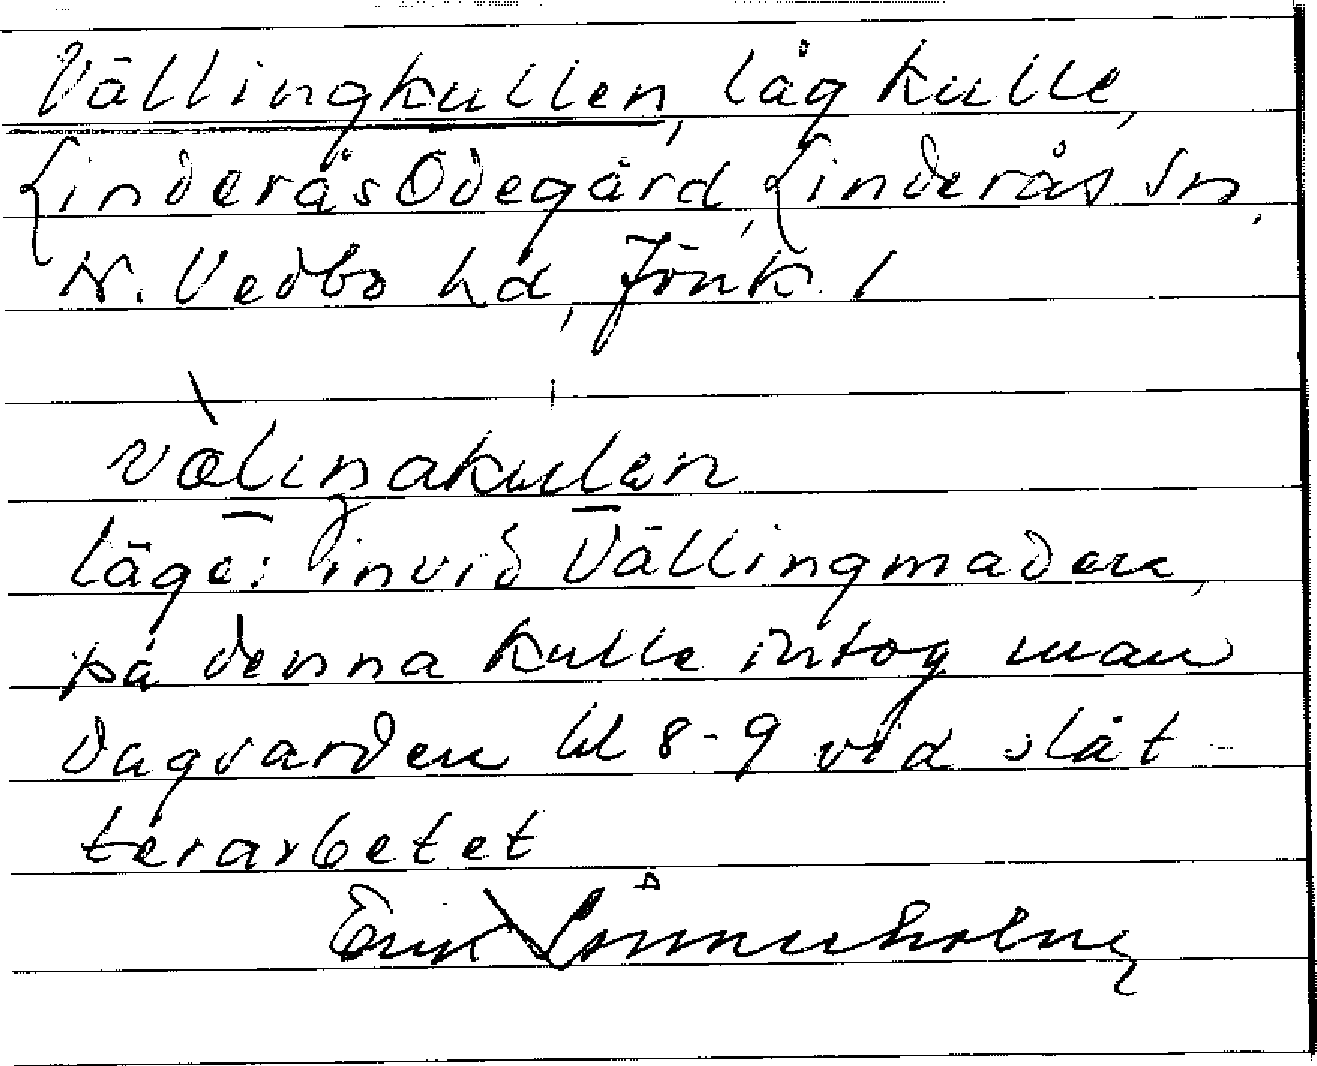 Vällingkullen, låg kulle,
Linderås Ödegård, Linderås sn,
N. Vedbo hd, Jönk. l
välinakulen
läge: invid Vällingmaden,
på denna kulle intog man
dagvarden kl 8-9 vid slåt-
terarbetet
Erik Lönnerholm